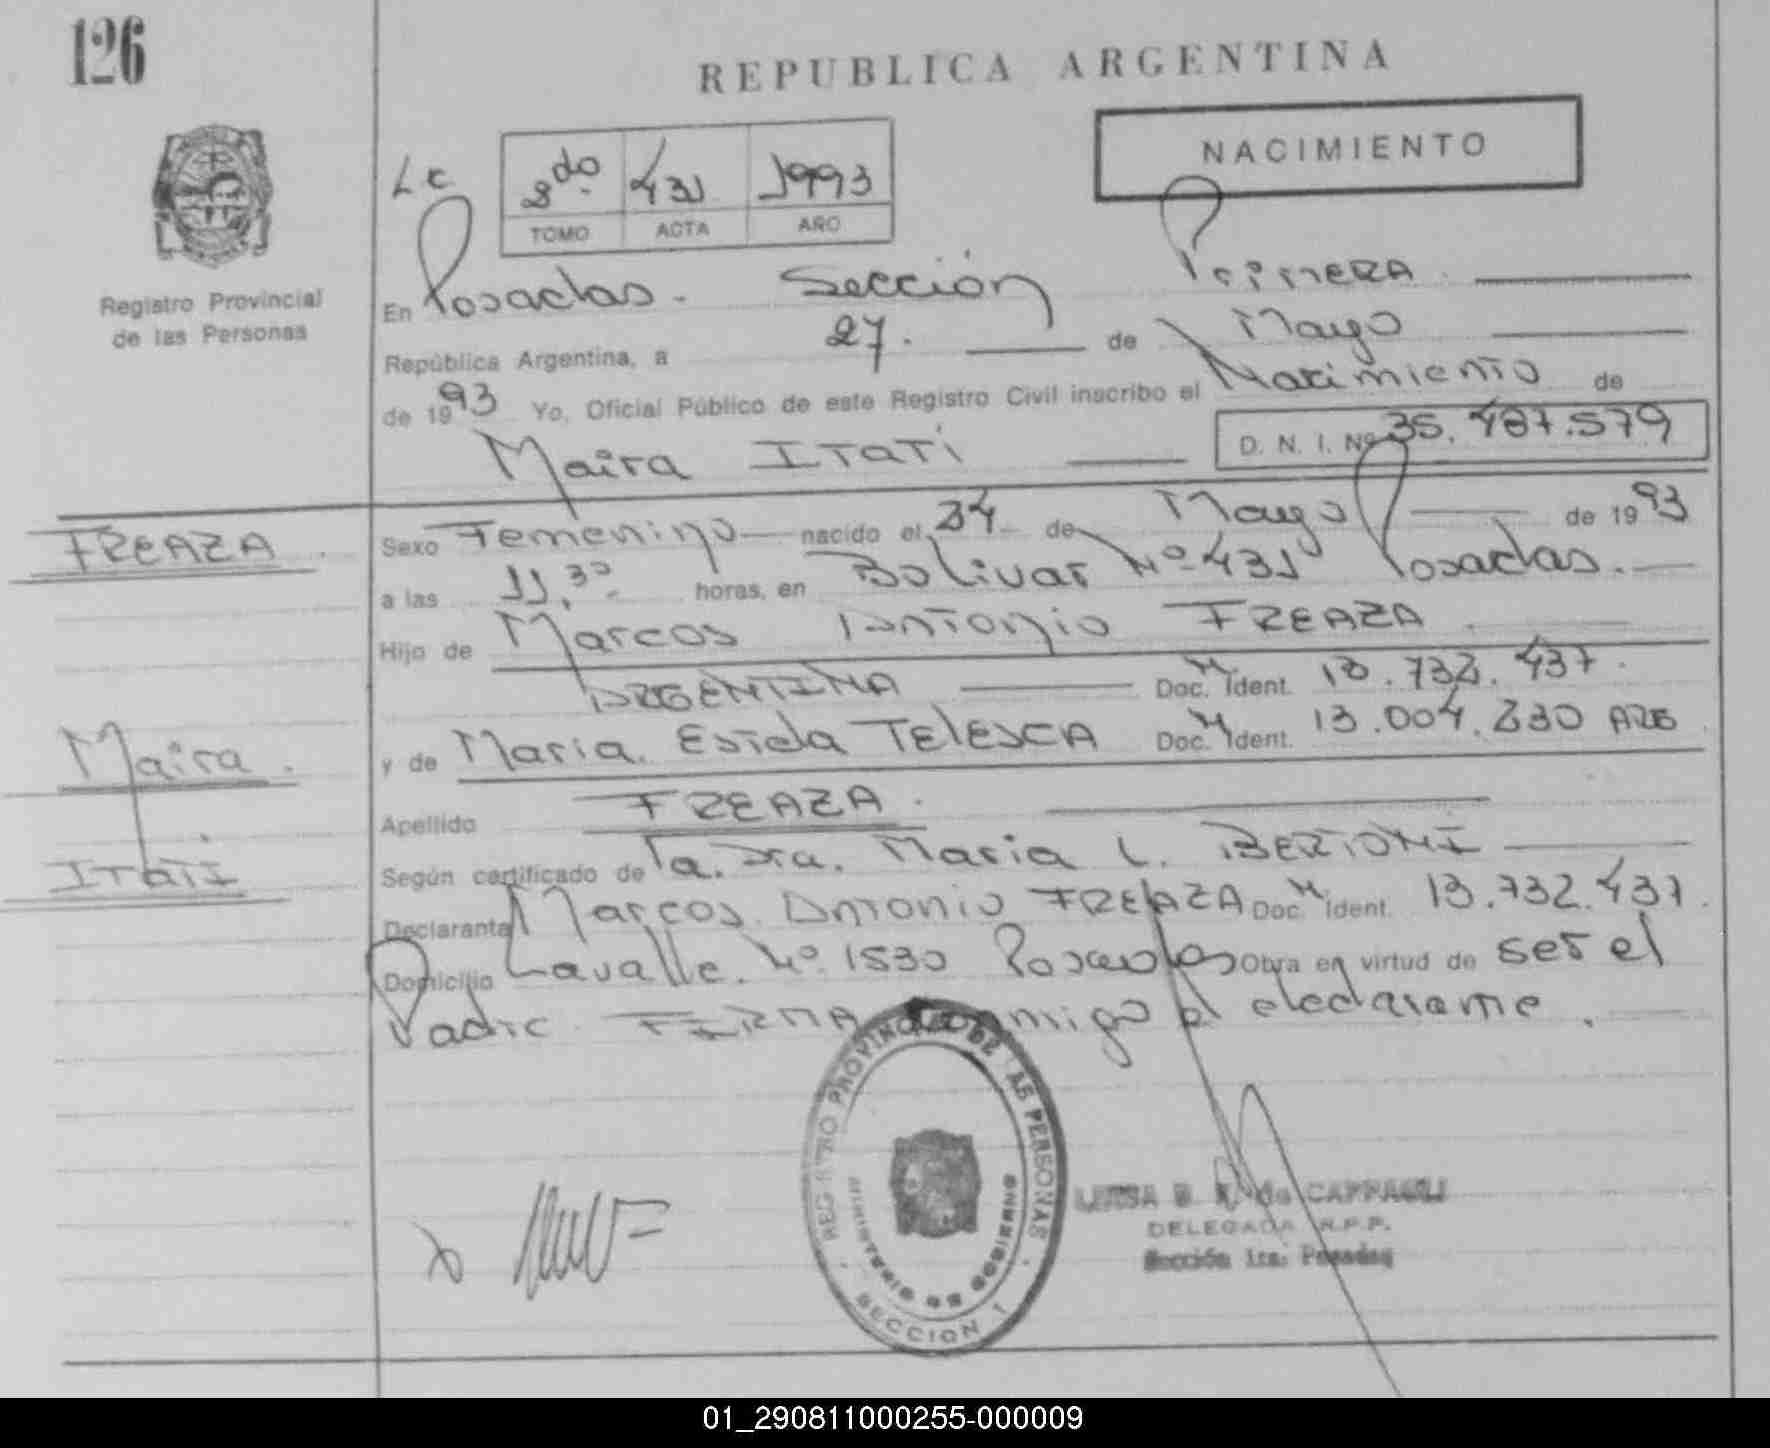 126
REPUBLICA ARGENTINA
NACIMIENTO
2do 431 1993
TOMO ACTA AÑO
Registro Provincial
de las Personas
En Posadas. Sección Primera
República Argentina, a 27. de Mayo
de 1993 Yo, Oficial Público de este Registro Civil inscribo el Nacimiento de
Maira ITATÍ D. N. I. Nº 35.487.579
FREAZA
Sexo Femenino nacido el 24 de Mayo de 1993
a las 11,30 horas, en Bolivar Nº 431 Posadas.
Hijo de Marcos Antonio FREAZA
ARGENTINA Doc. M. Ident. 13.732.437.
Maira.
y de Maria Estela TELESCA Doc. M. Ident. 13.004.230 ARG
Apellido FREAZA.
ITATÍ
Según certificado de la. Dra. Maria L. BERTONI
Declarante Marcos Antonio FREAZA Doc. M. Ident. 13.732.437.
Domicilio Lavalle. Nº. 1530 Posadas Obra en virtud de ser el
Padre. FIRMA conmigo el declarante.
REGISTRO PROVINCIAL DE LAS PERSONAS
MINISTERIO DE GOBIERNO
SECCION 1
de CAPPAGLI
DELEGADA R.P.P.
Sección 1ra: Posadas
01_290811000255-000009